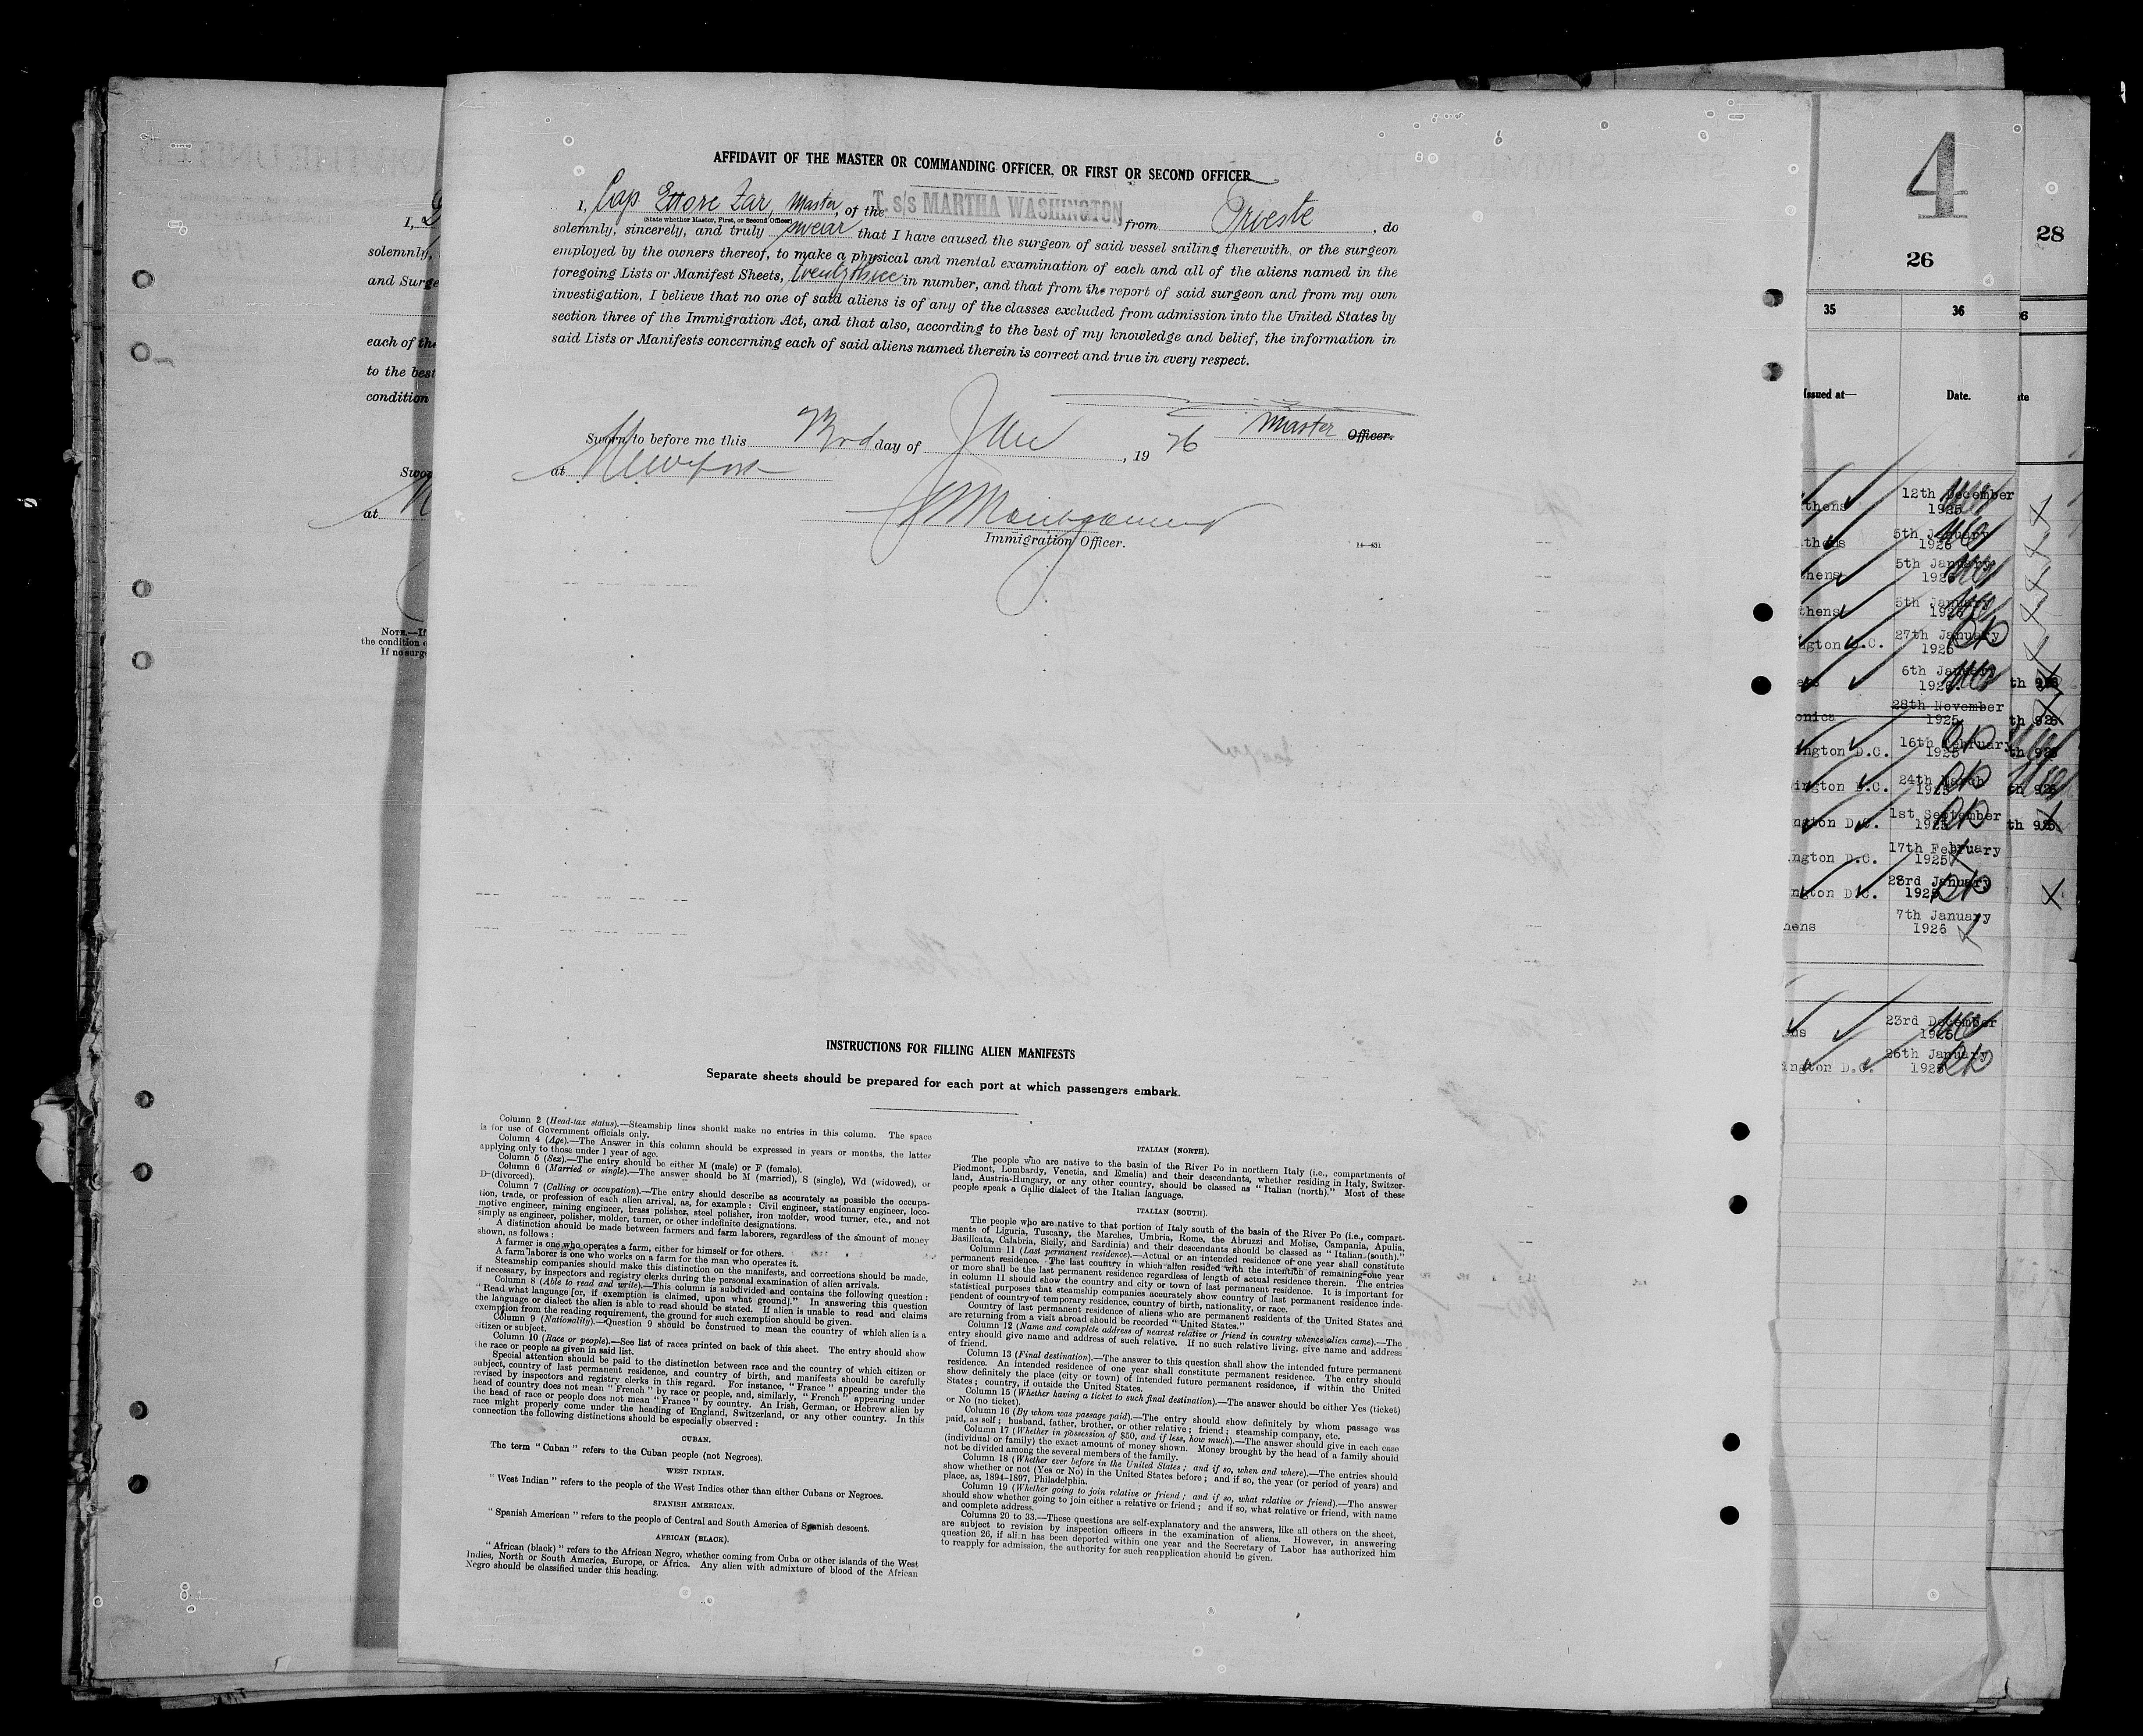 AFFIDAVIT OF THE MASTER OR COMMANDING OFFICER, OR FIRST OR SECOND OFFICER
I, Cap. Ettore Zar, Master, of the T. s/s MARTHA WASHINGTON, from Trieste, do
(State whether Master, First, or Second Officer)
solemnly, sincerely, and truly swear that I have caused the surgeon of said vessel sailing therewith, or the surgeon
employed by the owners thereof, to make a physical and mental examination of each and all of the aliens named in the
foregoing Lists or Manifest Sheets, twentythree in number, and that from the report of said surgeon and from my own
investigation, I believe that no one of said aliens is of any of the classes excluded from admission into the United States by
section three of the Immigration Act, and that also, according to the best of my knowledge and belief, the information in
said Lists or Manifests concerning each of said aliens named therein is correct and true in every respect.
Master Officer.
Sworn to before me this day of , 19 26
at New York
Montgomery
Immigration Officer.
INSTRUCTIONS FOR FILLING ALIEN MANIFESTS
Separate sheets should be prepared for each port at which passengers embark.
Column 2 (Head-tax status).—Steamship lines should make no entries in this column. The space
is for use of Government officials only.
Column 4 (Age).—The Answer in this column should be expressed in years or months, the latter
applying only to those under 1 year of age.
Column 5 (Sex).—The entry should be either M (male) or F (female).
Column 6 (Married or single).—The answer should be M (married), S (single), Wd (widowed), or
D (divorced).
Column 7 (Calling or occupation).—The entry should describe as accurately as possible the occupa-
tion, trade, or profession of each alien arrival, as, for example: Civil engineer, stationary engineer, loco-
motive engineer, mining engineer, brass polisher, steel polisher, iron molder, wood turner, etc., and not
simply as engineer, polisher, molder, turner, or other indefinite designations.
A distinction should be made between farmers and farm laborers, regardless of the amount of money
shown, as follows:
A farmer is one who operates a farm, either for himself or for others.
A farm laborer is one who works on a farm for the man who operates it.
Steamship companies should make this distinction on the manifests, and corrections should be made,
if necessary, by inspectors and registry clerks during the personal examination of alien arrivals.
Column 8 (Able to read and write).—This column is subdivided and contains the following question:
"Read what language [or, if exemption is claimed, upon what ground]." In answering this question
the language or dialect the alien is able to read should be stated. If alien is unable to read and claims
exemption from the reading requirement, the ground for such exemption should be given.
Column 9 (Nationality).—Question 9 should be construed to mean the country of which alien is a
citizen or subject.
Column 10 (Race or people).—See list of races printed on back of this sheet. The entry should show
the race or people as given in said list.
Special attention should be paid to the distinction between race and the country of which citizen or
subject, country of last permanent residence, and country of birth, and manifests should be carefully
revised by inspectors and registry clerks in this regard. For instance, "France" appearing under the
head of country does not mean "French" by race or people, and, similarly, "French" appearing under
the head of race or people does not mean "France" by country. An Irish, German, or Hebrew alien by
race might properly come under the heading of England, Switzerland, or any other country. In this
connection the following distinctions should be especially observed:
CUBAN.
The term "Cuban" refers to the Cuban people (not Negroes).
WEST INDIAN.
"West Indian" refers to the people of the West Indies other than either Cubans or Negroes.
SPANISH AMERICAN.
"Spanish American" refers to the people of Central and South America of Spanish descent.
AFRICAN (BLACK).
"African (black)" refers to the African Negro, whether coming from Cuba or other islands of the West
Indies, North or South America, Europe, or Africa. Any alien with admixture of blood of the African
Negro should be classified under this heading.
ITALIAN (NORTH).
The people who are native to the basin of the River Po in northern Italy (i.e., compartments of
Piedmont, Lombardy, Venetia, and Emelia) and their descendants, whether residing in Italy, Switzer-
land, Austria-Hungary, or any other country, should be classed as "Italian (north)." Most of these
people speak a Gallic dialect of the Italian language.
ITALIAN (SOUTH).
The people who are native to that portion of Italy south of the basin of the River Po (i.e., compart-
ments of Liguria, Tuscany, the Marches, Umbria, Rome, the Abruzzi and Molise, Campania, Apulia,
Basilicata, Calabria, Sicily, and Sardinia) and their descendants should be classed as "Italian (south)."
Column 11 (Last permanent residence).—Actual or an intended residence of one year shall constitute
permanent residence. The last country in which alien resided with the intention of remaining one year
or more shall be the last permanent residence regardless of length of actual residence therein. The entries
in column 11 should show the country and city or town of last permanent residence. It is important for
statistical purposes that steamship companies accurately show country of last permanent residence inde-
pendent of country of temporary residence, country of birth, nationality, or race.
Country of last permanent residence of aliens who are permanent residents of the United States and
are returning from a visit abroad should be recorded "United States."
Column 12 (Name and complete address of nearest relative or friend in country whence alien came).—The
entry should give name and address of such relative. If no such relative living, give name and address
of friend.
Column 13 (Final destination).—The answer to this question shall show the intended future permanent
residence. An intended residence of one year shall constitute permanent residence. The entry should
show definitely the place (city or town) of intended future permanent residence, if within the United
States; country, if outside the United States.
Column 15 (Whether having a ticket to such final destination).—The answer should be either Yes (ticket)
or No (no ticket).
Column 16 (By whom was passage paid).—The entry should show definitely by whom passage was
paid, as self; husband, father, brother, or other relative; friend; steamship company, etc.
Column 17 (Whether in possession of $50, and if less, how much).—The answer should give in each case
(individual or family) the exact amount of money shown. Money brought by the head of a family should
not be divided among the several members of the family.
Column 18 (Whether ever before in the United States; and if so, when and where).—The entries should
show whether or not (Yes or No) in the United States before; and if so, the year (or period of years) and
place, as, 1894-1897, Philadelphia.
Column 19 (Whether going to join relative or friend; and if so, what relative or friend).—The answer
should show whether going to join either a relative or friend; and if so, what relative or friend, with name
and complete address.
Columns 20 to 33.—These questions are self-explanatory and the answers, like all others on the sheet,
are subject to revision by inspection officers in the examination of aliens. However, in answering
question 26, if alien has been deported within one year and the Secretary of Labor has authorized him
to reapply for admission, the authority for such reapplication should be given.
I,
solemnly,
and Surge
each of the
to the best
condition
Swor
at
NOTE.—If
the condition o
If no surge
4
26
28
35 36
Issued at— Date.
thens 12th December 1925
thens 5th January 1926
hens 5th January 1926
thens 5th January 1926
ngton D.C. 27th January 1925
ens 6th January 1926
onica 28th November 1925
ington D.C. 16th February 1925
ington D.C. 24th March 1925
ngton D.C. 1st September 1925
ngton D.C. 17th February 1925
ngton D.C. 23rd January 1925
hens 7th January 1926
ns 23rd December 1925
ington D.C. 26th January 1925